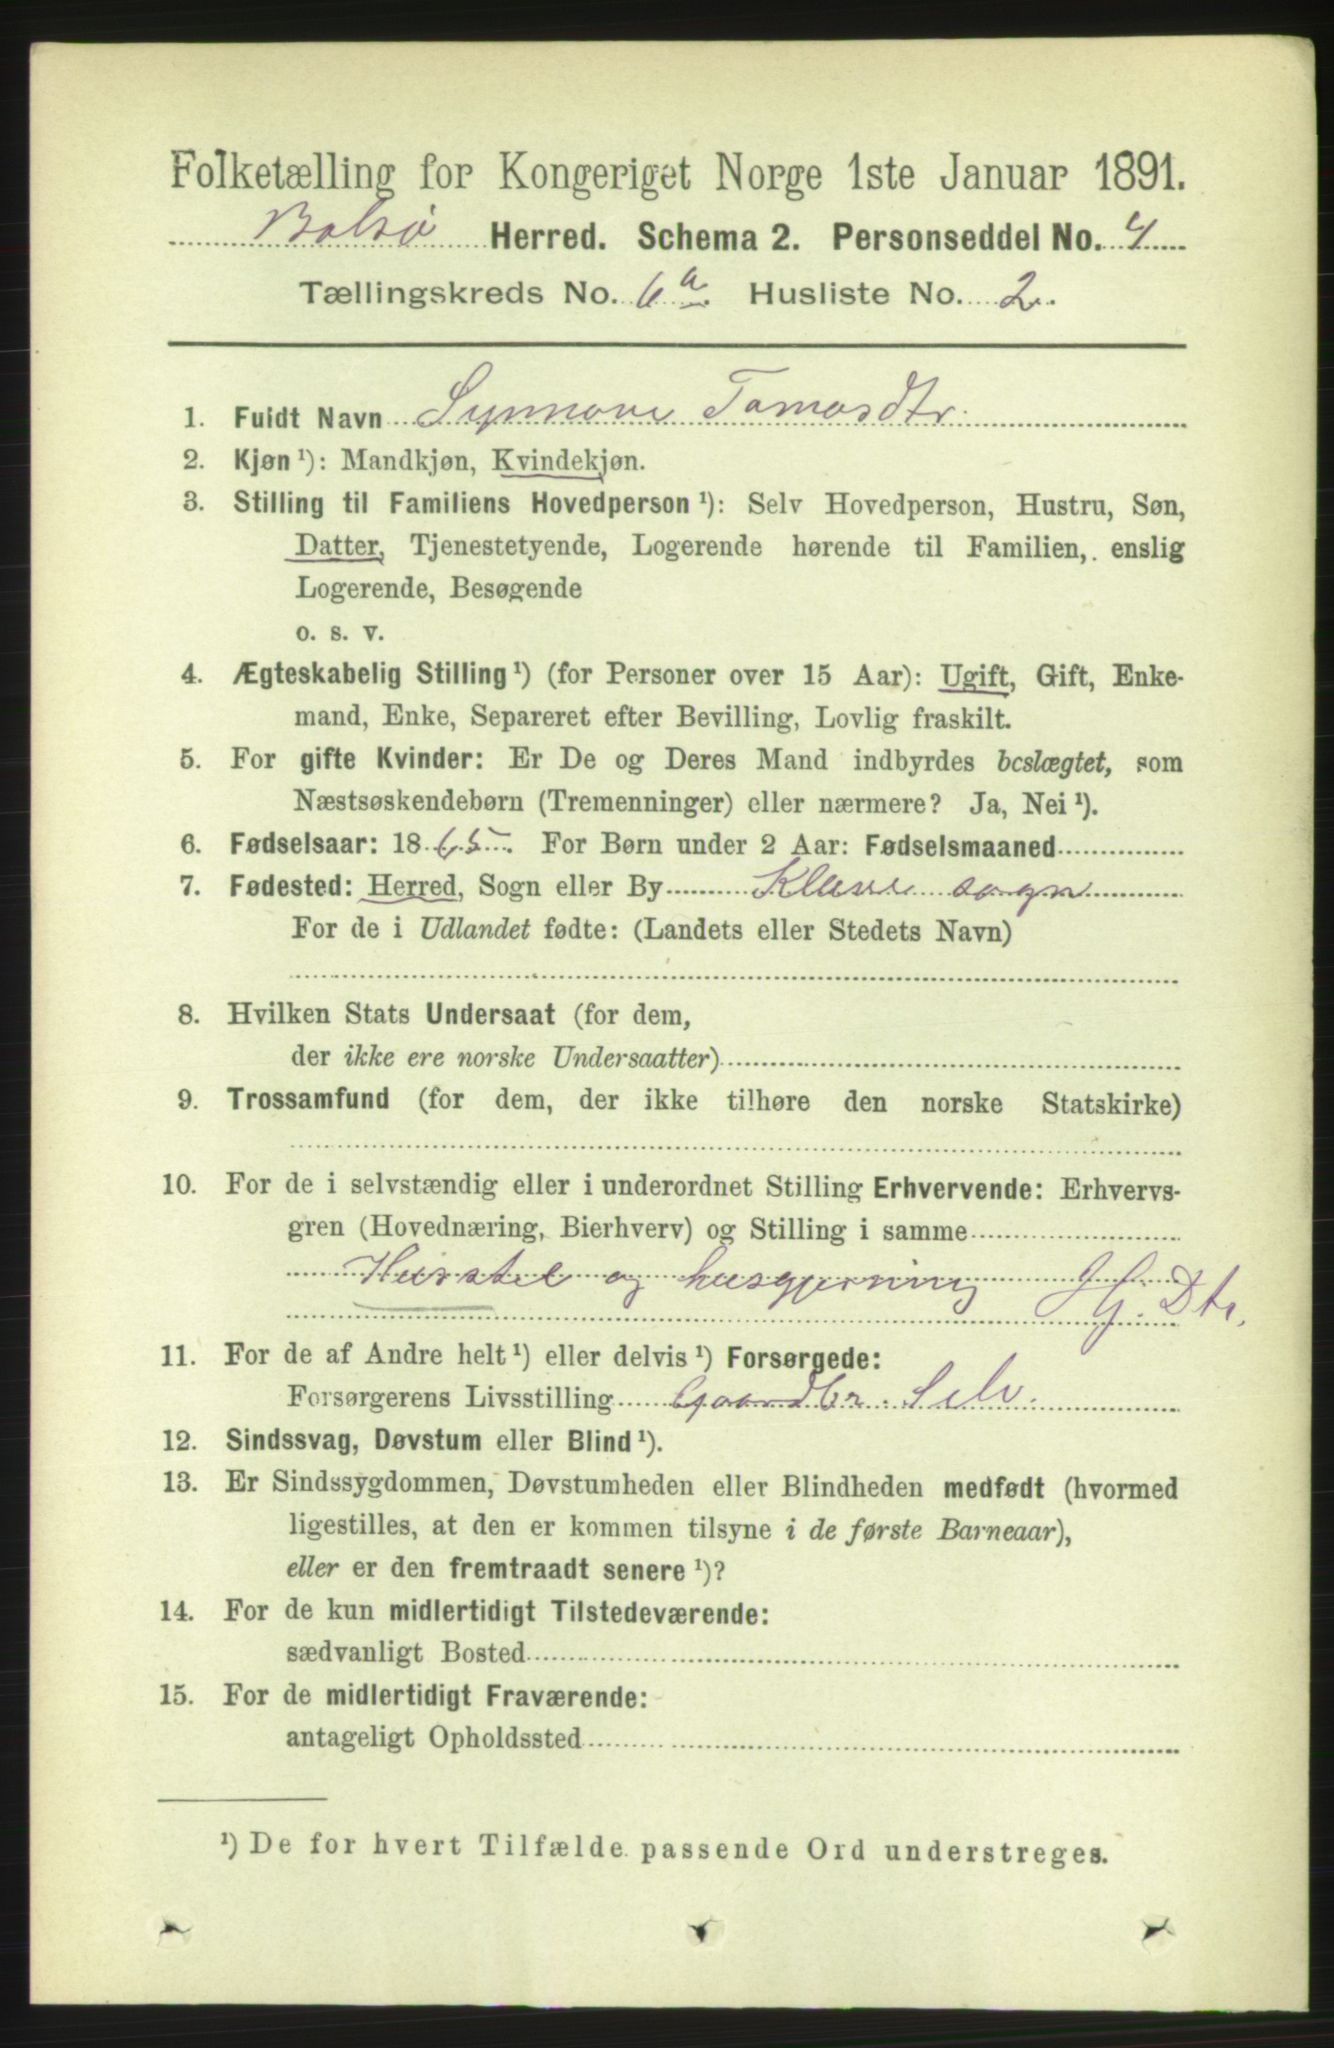 Folketælling for Kongeriget Norge 1ste Januar 1891.
Bolsø Herred. Schema 2. Personseddel No. 4
Tællingskreds No. 6 a. Husliste No. 2.
1. Fuldt Navn Synnove Tomasdtr.
2. Kjøn ¹): Mandkjøn, Kvindekjøn.
3. Stilling til Familiens Hovedperson ¹): Selv Hovedperson, Hustru, Søn,
Datter, Tjenestetyende, Logerende hørende til Familien, enslig
Logerende, Besøgende
o. s. v.
4. Ægteskabelig Stilling ¹) (for Personer over 15 Aar): Ugift, Gift, Enke-
mand, Enke, Separeret efter Bevilling, Lovlig fraskilt.
5. For gifte Kvinder: Er De og Deres Mand indbyrdes beslægtet, som
Næstsøskendebørn (Tremenninger) eller nærmere? Ja, Nei ¹).
6. Fødselsaar: 1865. For Børn under 2 Aar: Fødselsmaaned
7. Fødested: Herred, Sogn eller By Kleive sogn
For de i Udlandet fødte: (Landets eller Stedets Navn)
8. Hvilken Stats Undersaat (for dem,
der ikke ere norske Undersaatter)
9. Trossamfund (for dem, der ikke tilhøre den norske Statskirke)
10. For de i selvstændig eller i underordnet Stilling Erhvervende: Erhvervs-
gren (Hovednæring, Bierhverv) og Stilling i samme
Husstel og husgjerning Hj. Dtr.
11. For de af Andre helt ¹) eller delvis ¹) Forsørgede:
Forsørgerens Livsstilling Gaardbr. Selv.
12. Sindssvag, Døvstum eller Blind ¹).
13. Er Sindssygdommen, Døvstumheden eller Blindheden medfødt (hvormed
ligestilles, at den er kommen tilsyne i de første Barneaar),
eller er den fremtraadt senere ¹)?
14. For de kun midlertidigt Tilstedeværende:
sædvanligt Bosted
15. For de midlertidigt Fraværende:
antageligt Opholdssted
¹) De for hvert Tilfælde passende Ord understreges.